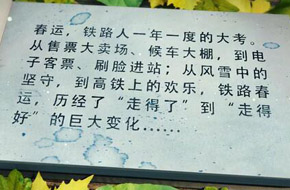 春运，铁路人一年一度的大考。
从售票大卖场、候车大棚，到电
子客票、刷脸进站；从风雪中的
坚守，到高铁上的欢乐，铁路春
运，历经了“走得了”到“走得
好”的巨大变化……